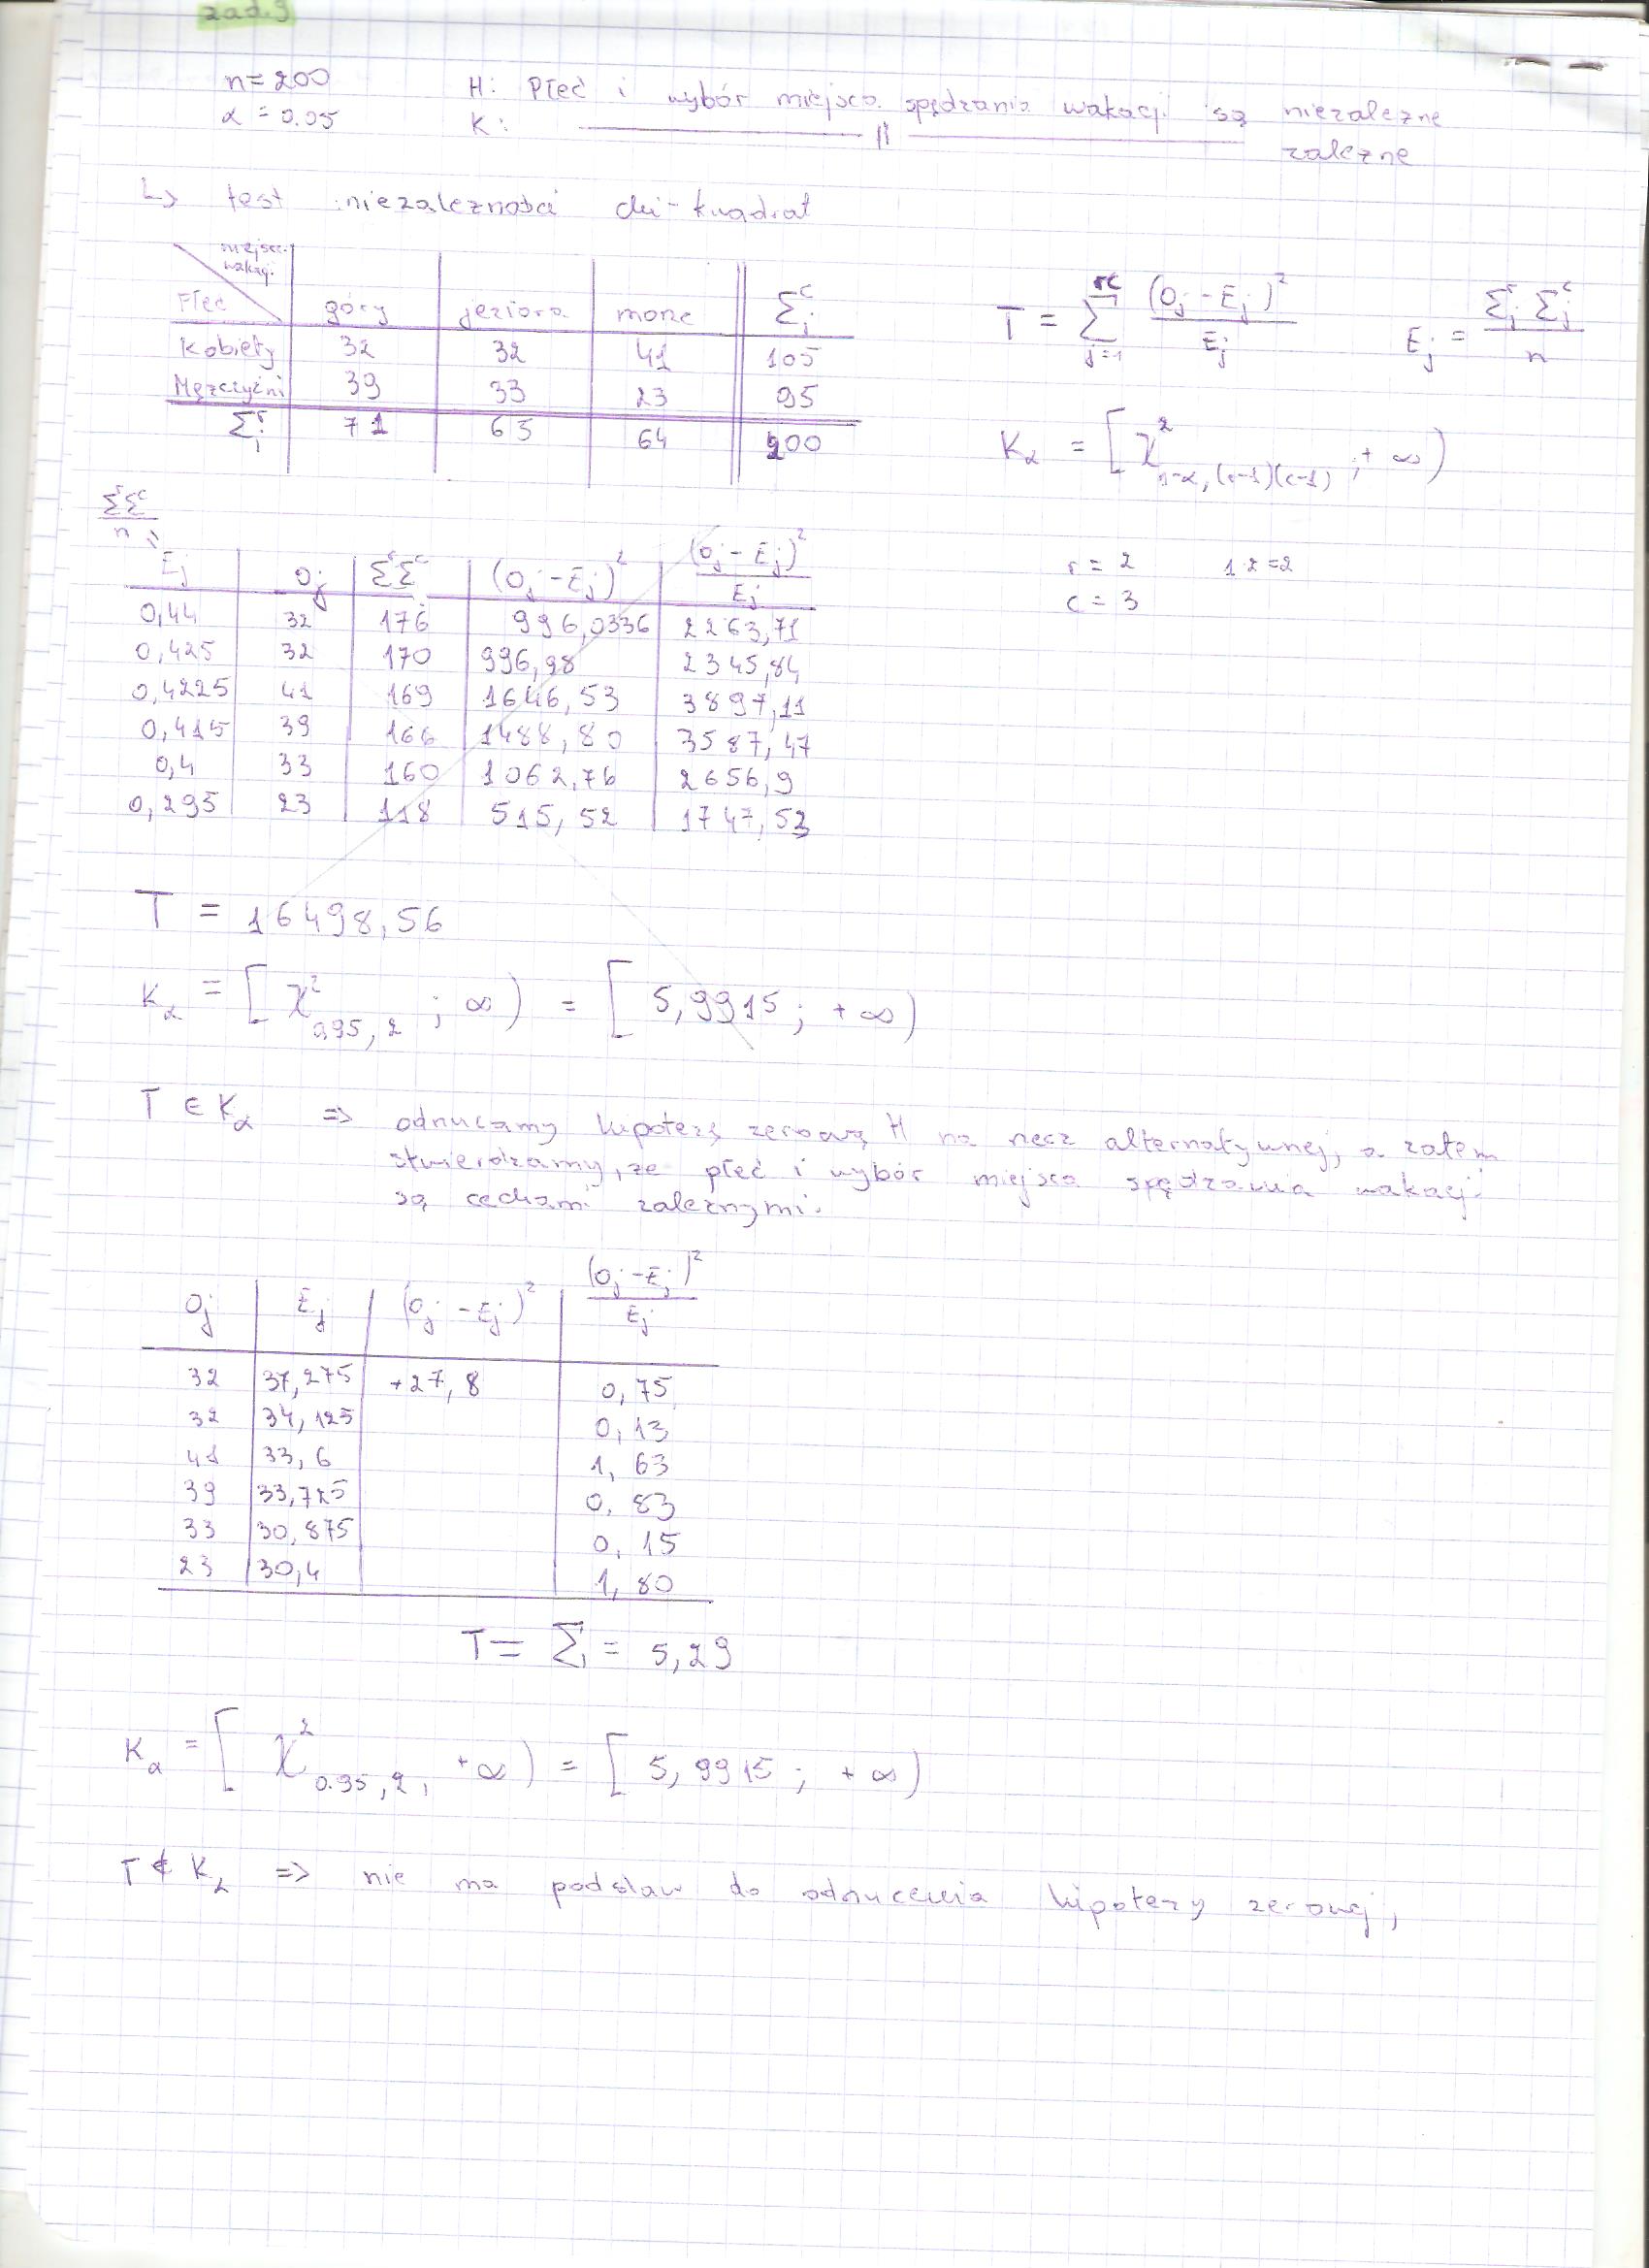 zad.9
n=200 H: Płeć i wybór miejsca spędzania wakacji są niezależne
α = 0.05 K: —— || —— zależne
↳ test niezależności chi-kwadrat
miejsce wakacji
Płeć góry jeziora morze Σ_j^c
Kobiety 32 32 41 105
Mężczyźni 39 33 23 95
Σ_i^r 71 65 64 200
T = Σ_{j=1}^{rc} (O_j - E_j)² / E_j E_j = Σ_j^r Σ_j^c / n
K_α = [χ²_{1-α, (r-1)(c-1)} ; +∞)
r = 2 1·2=2
c = 3
ΣʳΣᶜ / n
E_j O_j ΣʳΣᶜ (O_j - E_j)² (O_j - E_j)² / E_j
0,44 32 176 996,0336 2263,71
0,425 32 170 996,98 2345,84
0,4225 41 169 1646,53 3897,11
0,415 39 166 1488,80 3587,47
0,4 33 160 1062,76 2656,9
0,295 23 118 515,52 1747,53
T = 16498,56
K_α = [χ²_{0,95, 2} ; ∞) = [5,9915; +∞)
T ∈ K_α => odrzucamy hipotezę zerową H na rzecz alternatywnej, a zatem
stwierdzamy, że płeć i wybór miejsca spędzania wakacji
są cechami zależnymi.
O_j E_j (O_j - E_j)² (O_j - E_j)² / E_j
32 37,275 +27,8 0,75
32 34,125 0,13
41 33,6 1,63
39 33,725 0,83
33 30,875 0,15
23 30,4 1,80
T = Σ = 5,29
K_α = [χ²_{0.95, 2}, +∞) = [5,9915; +∞)
T ∉ K_α => nie ma podstaw do odrzucenia hipotezy zerowej,